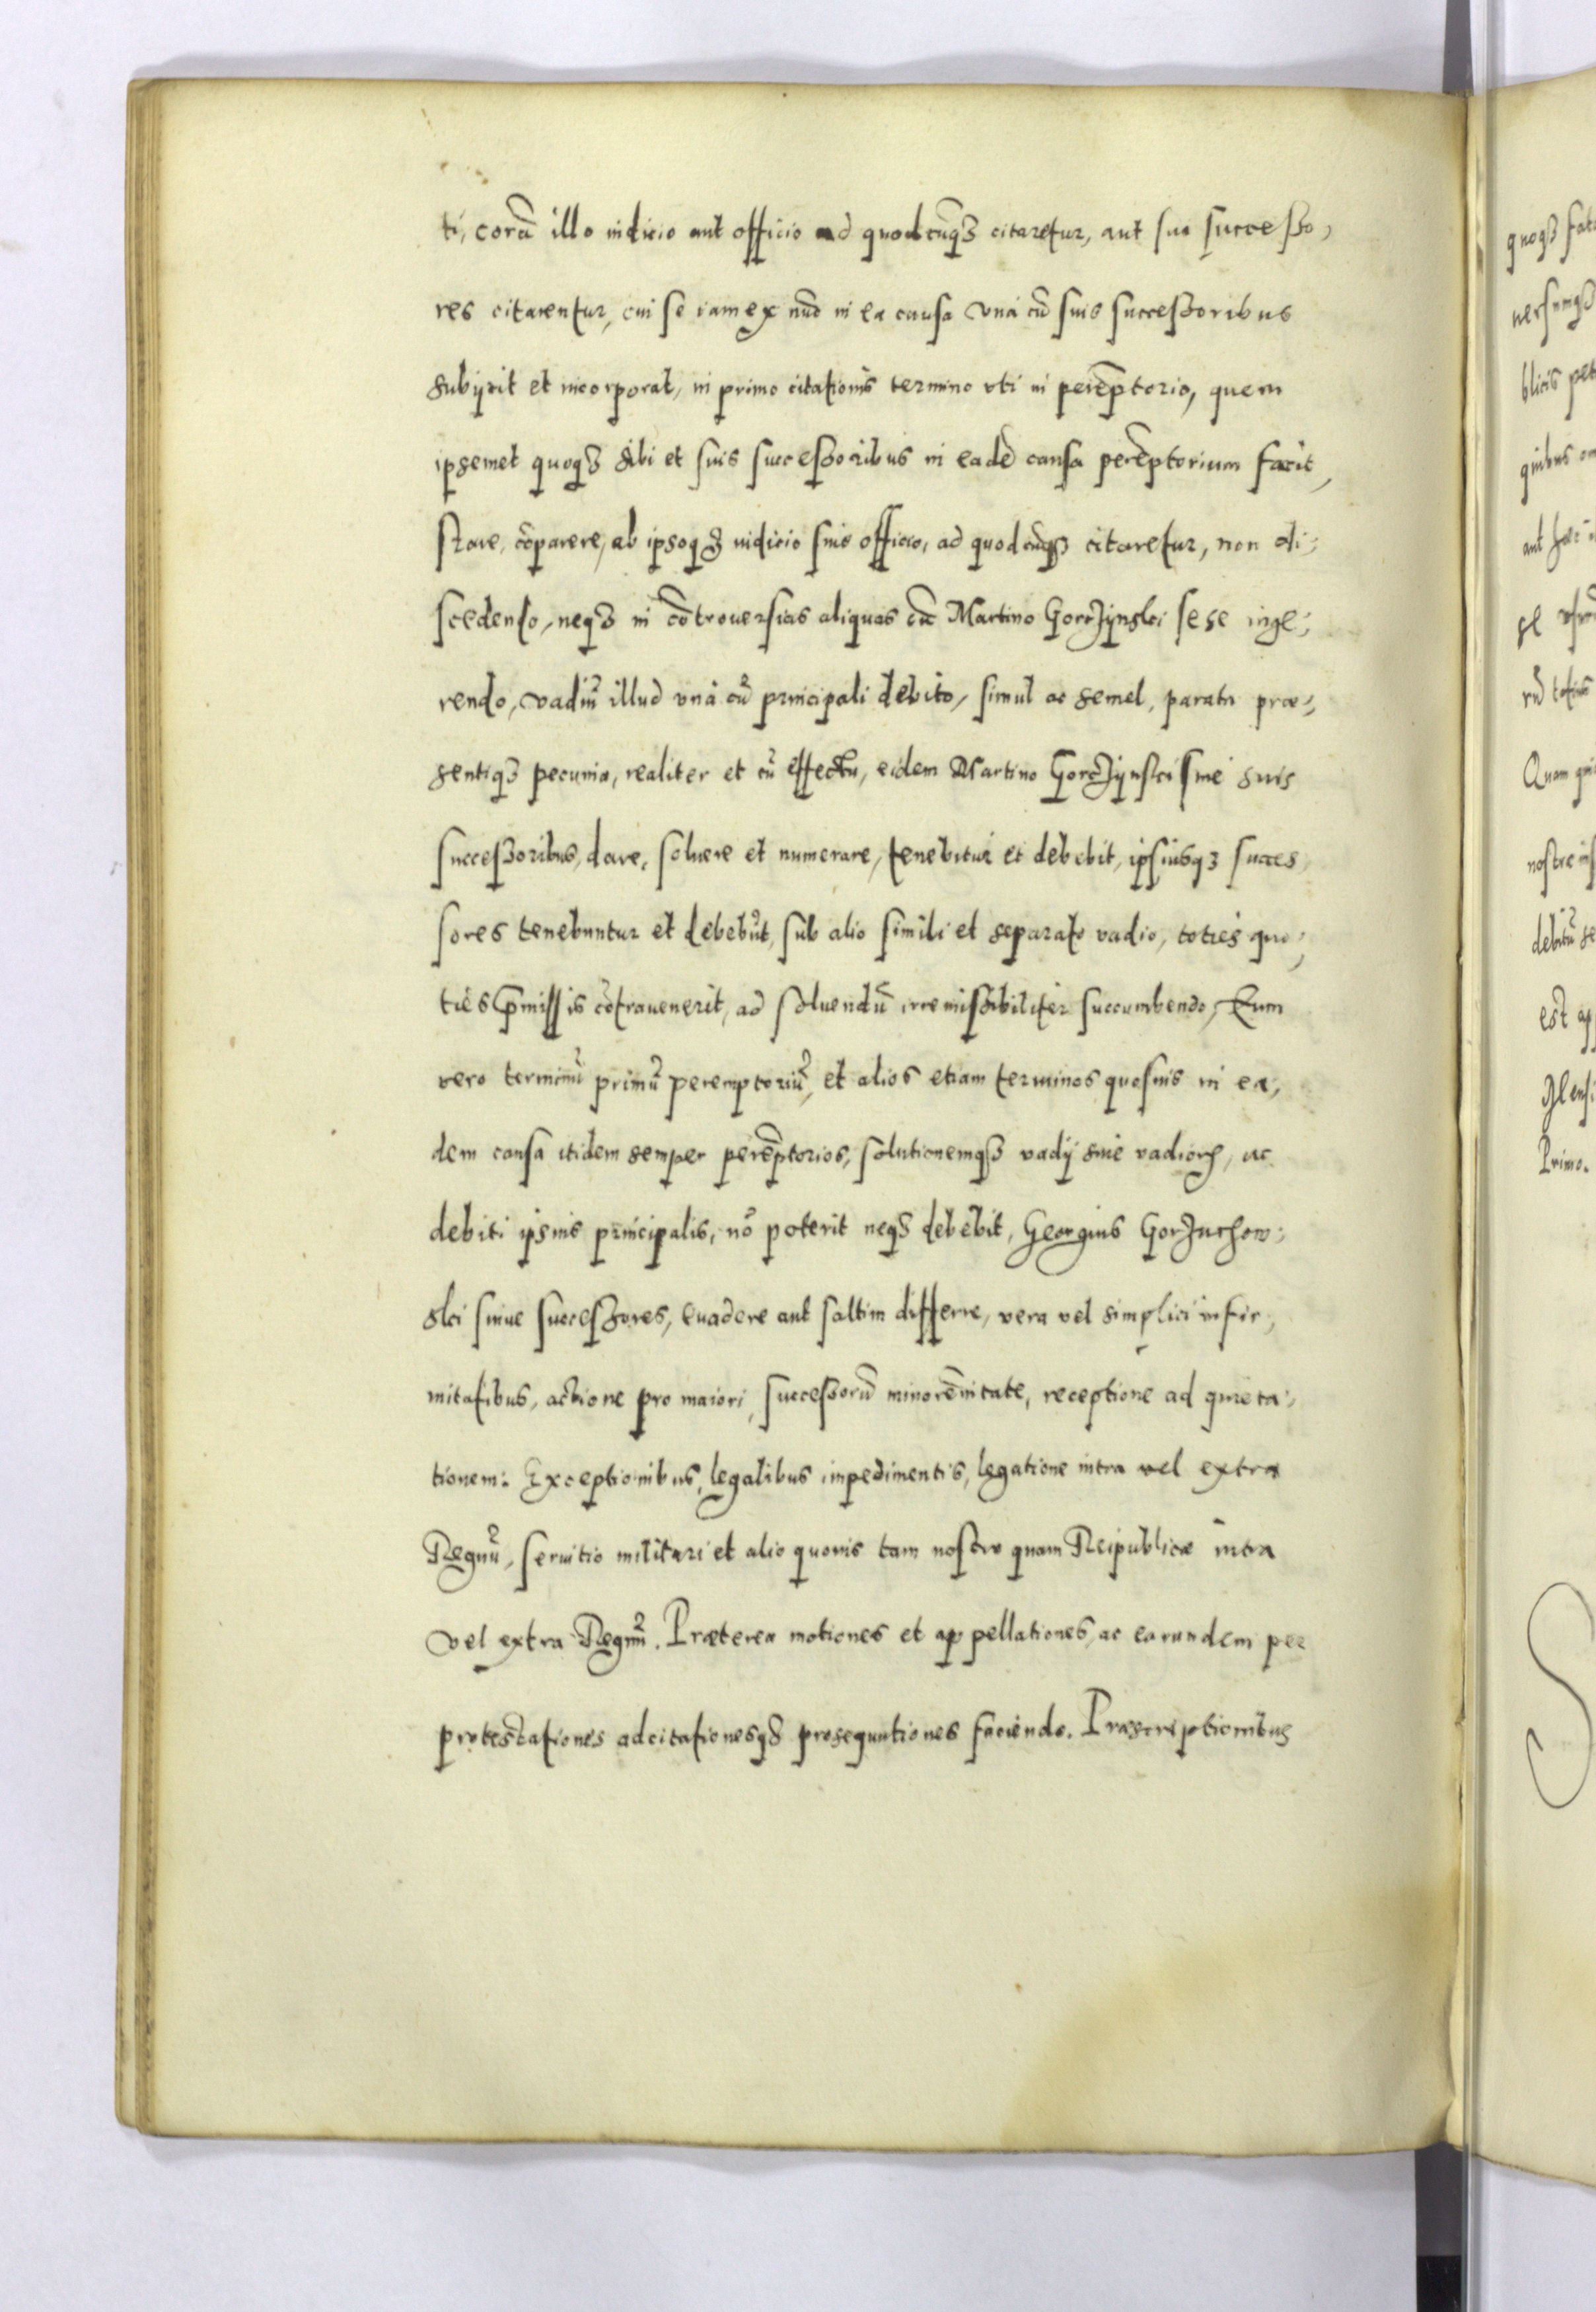 ti, corā illo iudicio aut officio ad quodcūqꝫ citaretur, aut sua successo,
res citarentur, cui se iam ex nūc in ea causa vná cū suis successoribus
subijcit et incorporat, in primo citationis termino vti in perēptorio, quem
ipsemet quoqꝫ sibi et suis successoribus in eadē causa perēptorium facit,
stare, cōparere, ab ipsoqꝫ iudicio siue officio, ad quodcūqꝫ citaretur, non di,
scedendo, neqꝫ in cōtrouersias aliquas cū Martino Gorzÿnski sese inge,
rendo, vadiū illud vná cū principali debito, simul ac semel, parata præ,
sentiqꝫ pecunia, realiter et cū effectu, eidem Martino Gorzÿnski siue suis
successoribus, dare, soluere et numerare, tenebitur et debebit, ipsiusqꝫ succes
sores tenebuntur et debebūt, sub alio simili et separato vadio, toties quo,
ties p̄missis cōtrauenerit, ad soluendū irremissibiliter succumbendo, Eum
vero terminū primū peremptoriū, et alios etiam terminos quosuis in ea,
dem causa itidem semper perēptorios, solutionemqꝫ vadij siue vadiorꝝ, ac
debiti ipsius principalis, nō poterit neqꝫ debebit, Georgius Gorzuchow,
ski siuue successores, euadere aut saltim differre, vera vel simplici infir,
mitatibus, actione pro maiori, successorū minorēnitate, receptione ad quieta,
tionem. Exceptionibus, legalibus impedimentis, legatione intra vel extra
Regnū, seruitio militari et alio quouis tam nostro quam Reipublicæ intra
vel extra Regnū. Præterea motiones et appellationes, ac earundem per
protestationes adcitationesqꝫ prosequutiones faciendo. Præscriptionibus